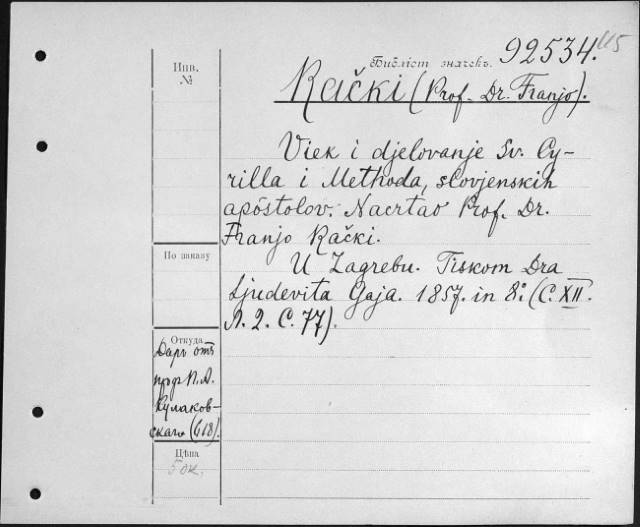 92534.
115
Библіот. значекъ.
Инв.
№
Rački (Prof. Dr. Franjo).
Viek i djelovanje Sv. Cy-
rilla i Methoda, slovjenskih
apóstolov. Nacrtao Prof. Dr.
Franjo Rački.
По заказу
U Zagrebu. Tiskom Dra
Ljudevita Gaja. 1857. in 8º. (С. XII.
Л. 2. С. 77).
Откуда
Даръ отъ
проф. П. А.
Кулаков-
скаго (618).
Цѣна
5 ок.